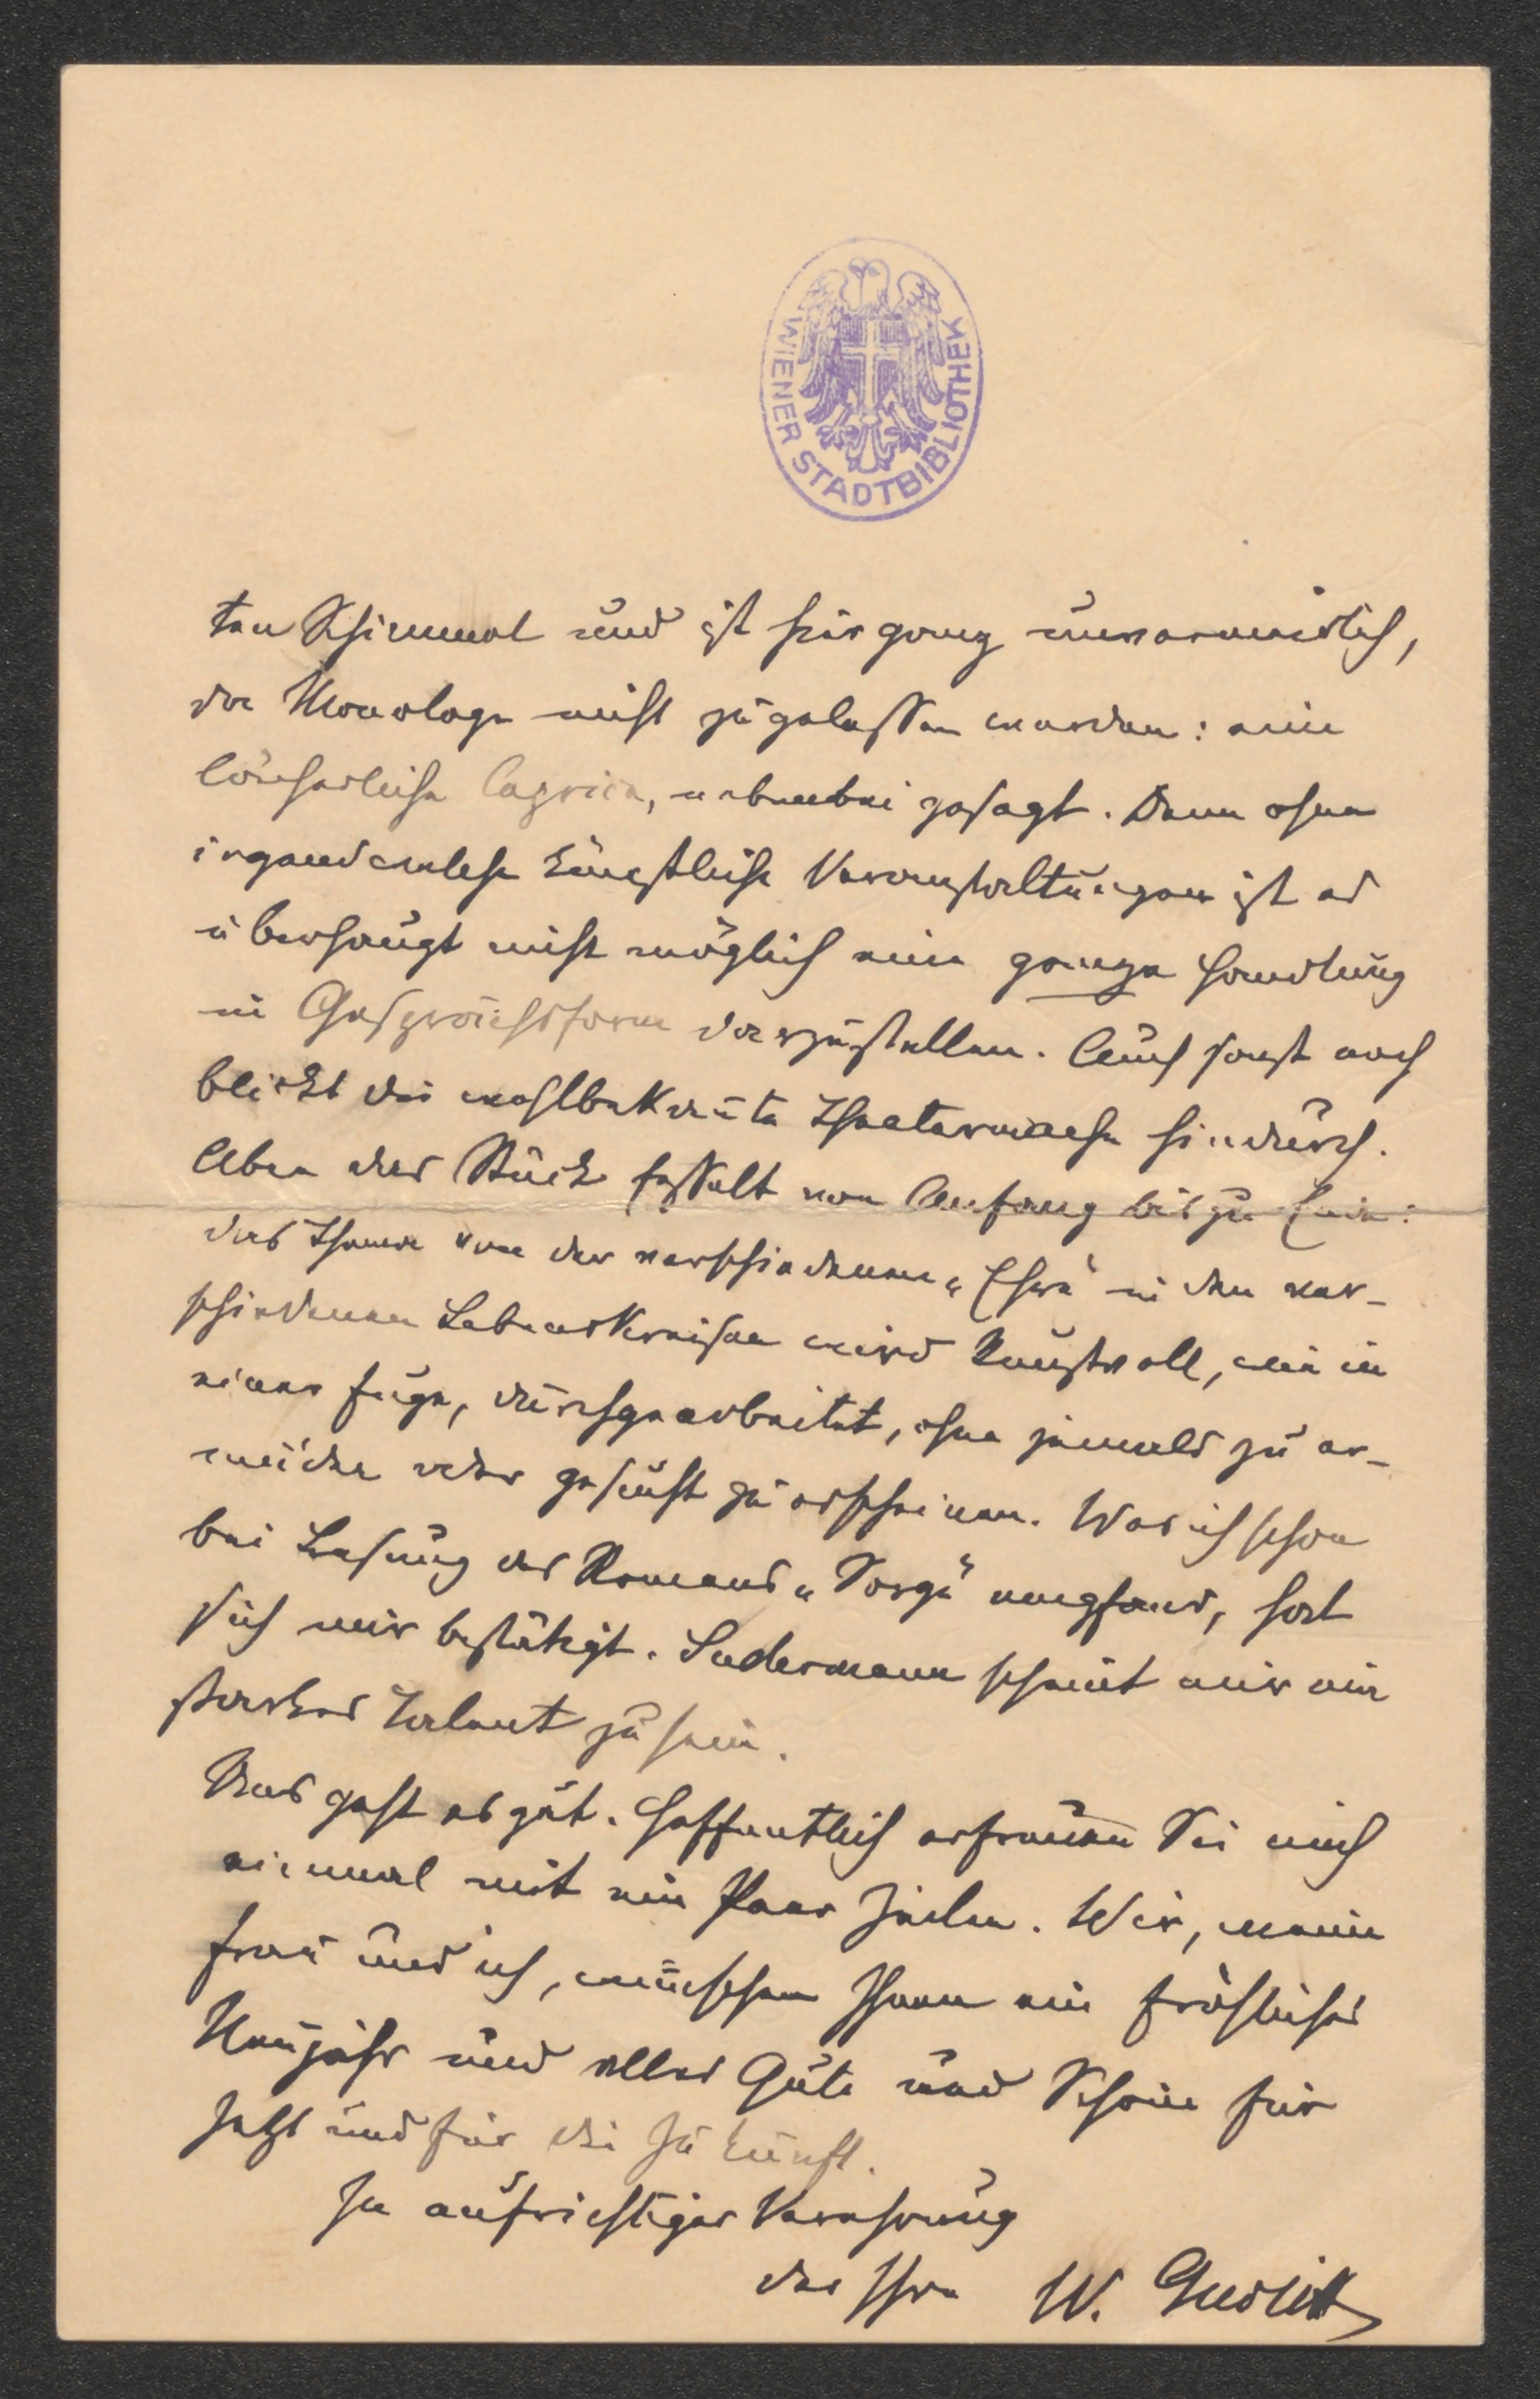 WIENER STADTBIBLIOTHEK
ten Schimmel und ist hier ganz unvermeidlich,
da Monologe nicht zugelassen werden: eine
lächerliche Caprice, nebenbei gesagt. Denn ohne
irgendwelche künstliche Veranstaltungen ist es
überhaupt nicht möglich eine ganze Handlung
in Gesprächsform darzustellen. Auch sonst noch
blickt die wohlbekannte Theatermache hindurch.
Aber das Stück fesselt von Anfang bis zu Ende:
das Thema von der verschiedenen „Ehre" in den ver-
schiedenen Lebenskreisen wird kunstvoll, wie in
einer Fuge, durchgearbeitet, ohne jemals zu er-
müden oder gesucht zu erscheinen. Was ich schon
bei Lesung des Romans „Sorge" empfand, hat
sich mir bestätigt. Sudermann scheint mir ein
starkes Talent zu sein.
Uns geht es gut. Hoffentlich erfreuen Sie mich
einmal mit ein Paar Zeilen. Wir, meine
Frau und ich, wünschen Ihnen ein fröhliches
Neujahr und alles Gute und Schöne für
Jetzt und für die Zukunft.
In aufrichtiger Verehrung
der Ihre W. Gurlitt